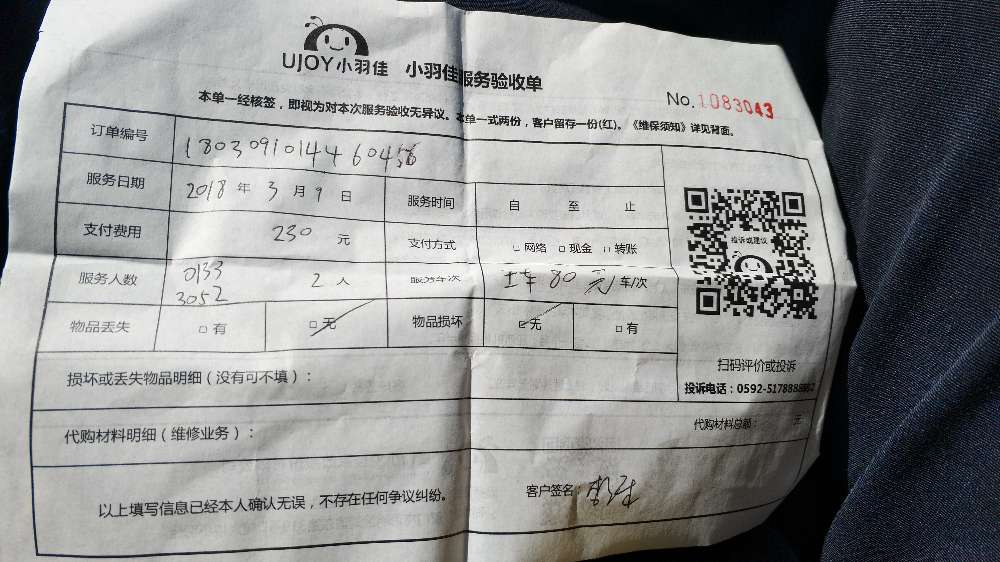 UJOY小羽佳 小羽佳服务验收单
No.1083043
本单一经核签，即视为对本次服务验收无异议。本单一式两份，客户留存一份(红)。《维保须知》详见背面。
订单编号 180309101446045
服务日期 2018年3月9日 服务时间 自 至 止
支付费用 230元 支付方式 □网络 □现金 □转账
服务人数 0133 3052 2人 服务车次 80元 车/次
物品丢失 □有 □无 物品损坏 □无 □有
投诉或建议
扫码评价或投诉
投诉电话：0592-5178888
损坏或丢失物品明细（没有可不填）：
代购材料明细（维修业务）： 代购材料总额： 元
以上填写信息已经本人确认无误，不存在任何争议纠纷。 客户签名：